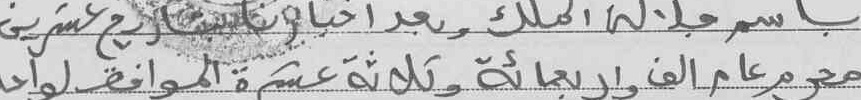 باسم جلالة الملك وبعد اخبارنا بتاريخ عشرين
محرم عام الف واربعمائة وثلاثة عشرة الموافق لواحد